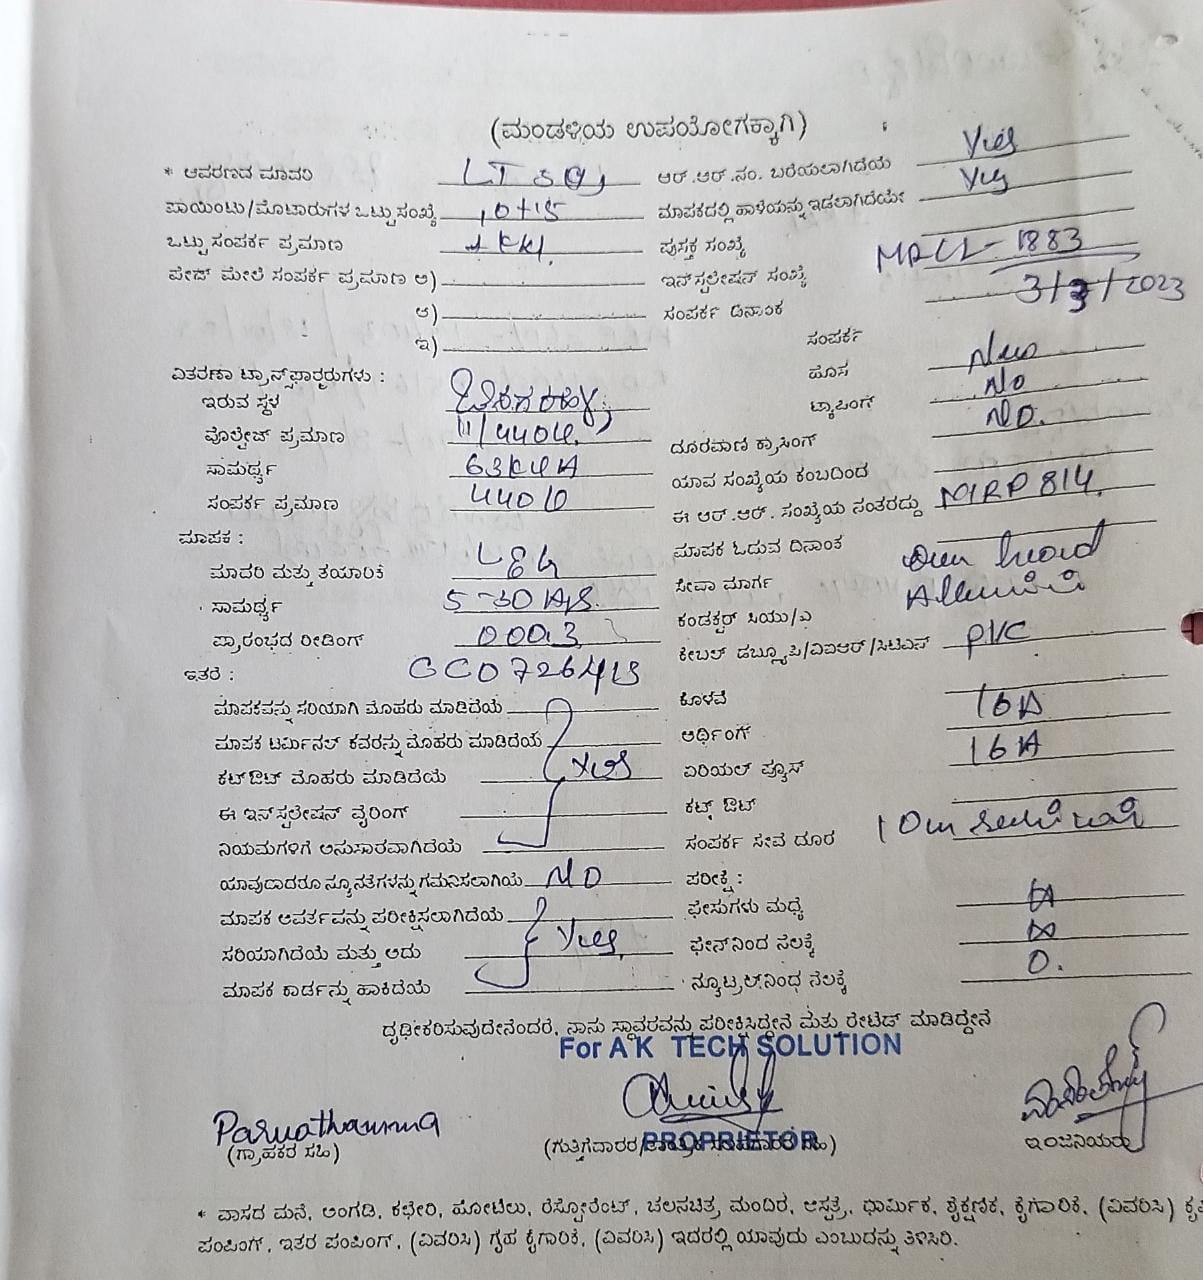 (ಮಂಡಳಿಯ ಉಪಯೋಗಕ್ಕಾಗಿ)
* ಆವರಣದ ಮಾದರಿ
ಆರ್.ಆರ್.ನಂ. ಬರೆಯಲಾಗಿದೆಯೆ Yes
ಪಾಯಿಂಟು/ಮೊಟಾರುಗಳ ಒಟ್ಟು ಸಂಖ್ಯೆ
ಮಾಪಕದಲ್ಲಿ ಹಾಳೆಯನ್ನು ಇಡಲಾಗಿದೆಯೇ Yes
ಒಟ್ಟು ಸಂಪರ್ಕ ಪ್ರಮಾಣ
ಪುಸ್ತಕ ಸಂಖ್ಯೆ
ಪೇಜ್ ಮೇಲೆ ಸಂಪರ್ಕ ಪ್ರಮಾಣ ಅ)
ಇನ್‌ಸ್ಟಲೇಷನ್ ಸಂಖ್ಯೆ 1883
ಆ)
ಸಂಪರ್ಕ ದಿನಾಂಕ 3/3/2023
ಇ)
ಸಂಪರ್ಕ
ವಿತರಣಾ ಟ್ರಾನ್ಸ್‌ಫಾರ್ಮರುಗಳು :
ಹೊಸ
ಇರುವ ಸ್ಥಳ
ಟ್ಯಾಪಿಂಗ್ No
ವೊಲ್ಟೇಜ್ ಪ್ರಮಾಣ
ದೂರವಾಣಿ ಕ್ರಾಸಿಂಗ್ NO.
ಸಾಮರ್ಥ್ಯ 63KVA
ಯಾವ ಸಂಖ್ಯೆಯ ಕಂಬದಿಂದ
ಸಂಪರ್ಕ ಪ್ರಮಾಣ 440V
ಈ ಆರ್.ಆರ್. ಸಂಖ್ಯೆಯ ನಂತರದ್ದು MRP814
ಮಾಪಕ :
ಮಾಪಕ ಓದುವ ದಿನಾಂಕ
ಮಾದರಿ ಮತ್ತು ತಯಾರಿಕೆ L&G
ಸೇವಾ ಮಾರ್ಗ Over head
ಸಾಮರ್ಥ್ಯ
ಕಂಡಕ್ಟರ್ ಸಿಯು/ಎ
ಪ್ರಾರಂಭದ ರೀಡಿಂಗ್ 000.3
ಕೇಬಲ್ ಡಬ್ಲ್ಯೂಪಿ/ವಿಐಆರ್/ಸಿಟಿಎಸ್ PVC
ಇತರೆ :
ಮಾಪಕವನ್ನು ಸರಿಯಾಗಿ ಮೊಹರು ಮಾಡಿದೆಯೆ
ಕೊಳವೆ
ಮಾಪಕ ಟರ್ಮಿನಲ್ ಕವರನ್ನು ಮೊಹರು ಮಾಡಿದೆಯೆ
ಅರ್ಥಿಂಗ್ 16A
ಕಟ್‌ಔಟ್ ಮೊಹರು ಮಾಡಿದೆಯೆ Yes
ಏರಿಯಲ್ ಪ್ಯೂಸ್ 16A
ಈ ಇನ್‌ಸ್ಟಲೇಷನ್ ವೈರಿಂಗ್
ಕಟ್ಟ್ ಔಟ್
ನಿಯಮಗಳಿಗೆ ಅನುಸಾರವಾಗಿದೆಯೆ
ಸಂಪರ್ಕ ಸೇವೆ ದೂರ 10m
ಯಾವುದಾದರೂ ನ್ಯೂನತೆಗಳನ್ನು ಗಮನಿಸಲಾಗಿಯೆ NO
ಪರೀಕ್ಷೆ :
ಮಾಪಕ ಆವರ್ತವನ್ನು ಪರೀಕ್ಷಿಸಲಾಗಿದೆಯೆ
ಫೇಸುಗಳು ಮಧ್ಯೆ
ಸರಿಯಾಗಿದೆಯೆ ಮತ್ತು ಅದು Yes
ಫೇಸ್‌ನಿಂದ ನೆಲಕ್ಕೆ
ಮಾಪಕ ಕಾರ್ಡನ್ನು ಹಾಕಿದೆಯೆ
ನ್ಯೂಟ್ರಲ್‌ನಿಂಧ ನೆಲಕ್ಕೆ 0.
ದೃಢೀಕರಿಸುವುದೇನೆಂದರೆ, ನಾನು ಸ್ಥಾವರವನ್ನು ಪರೀಕ್ಷಿಸಿದ್ದೇನೆ ಮತ್ತು ರೇಟೆಡ್ ಮಾಡಿದ್ದೇನೆ
For A K TECH SOLUTION
Parvathamma
(ಗ್ರಾಹಕರ ಸಹಿ)
PROPRIETOR
ಇಂಜಿನಿಯರು
* ವಾಸದ ಮನೆ, ಅಂಗಡಿ, ಕಛೇರಿ, ಹೋಟೆಲು, ರೆಸ್ಟೋರೆಂಟ್, ಚಲನಚಿತ್ರ ಮಂದಿರ, ಆಸ್ಪತ್ರೆ, ಧಾರ್ಮಿಕ, ಶೈಕ್ಷಣಿಕ, ಕೈಗಾರಿಕೆ, (ವಿವರಿಸಿ)
ಪಂಪಿಂಗ್, ಇತರ ಪಂಪಿಂಗ್, (ವಿವರಿಸಿ) ಗೃಹ ಕೈಗಾರಿಕೆ, (ವಿವರಿಸಿ) ಇದರಲ್ಲಿ ಯಾವುದು ಎಂಬುದನ್ನು ತಿಳಿಸಿರಿ.